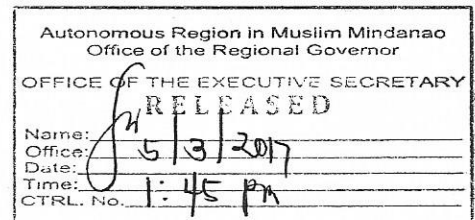 Autonomous Region in Muslim Mindanao
Office of the Regional Governor
OFFICE OF THE EXECUTIVE SECRETARY
RELEASED
Name:
Office:
Date: 5/3/2017
Time: 1:45 PM
CTRL. No.